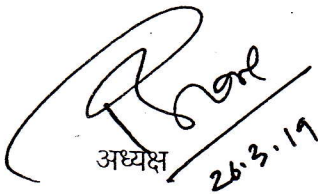 अध्यक्ष
26.3.19